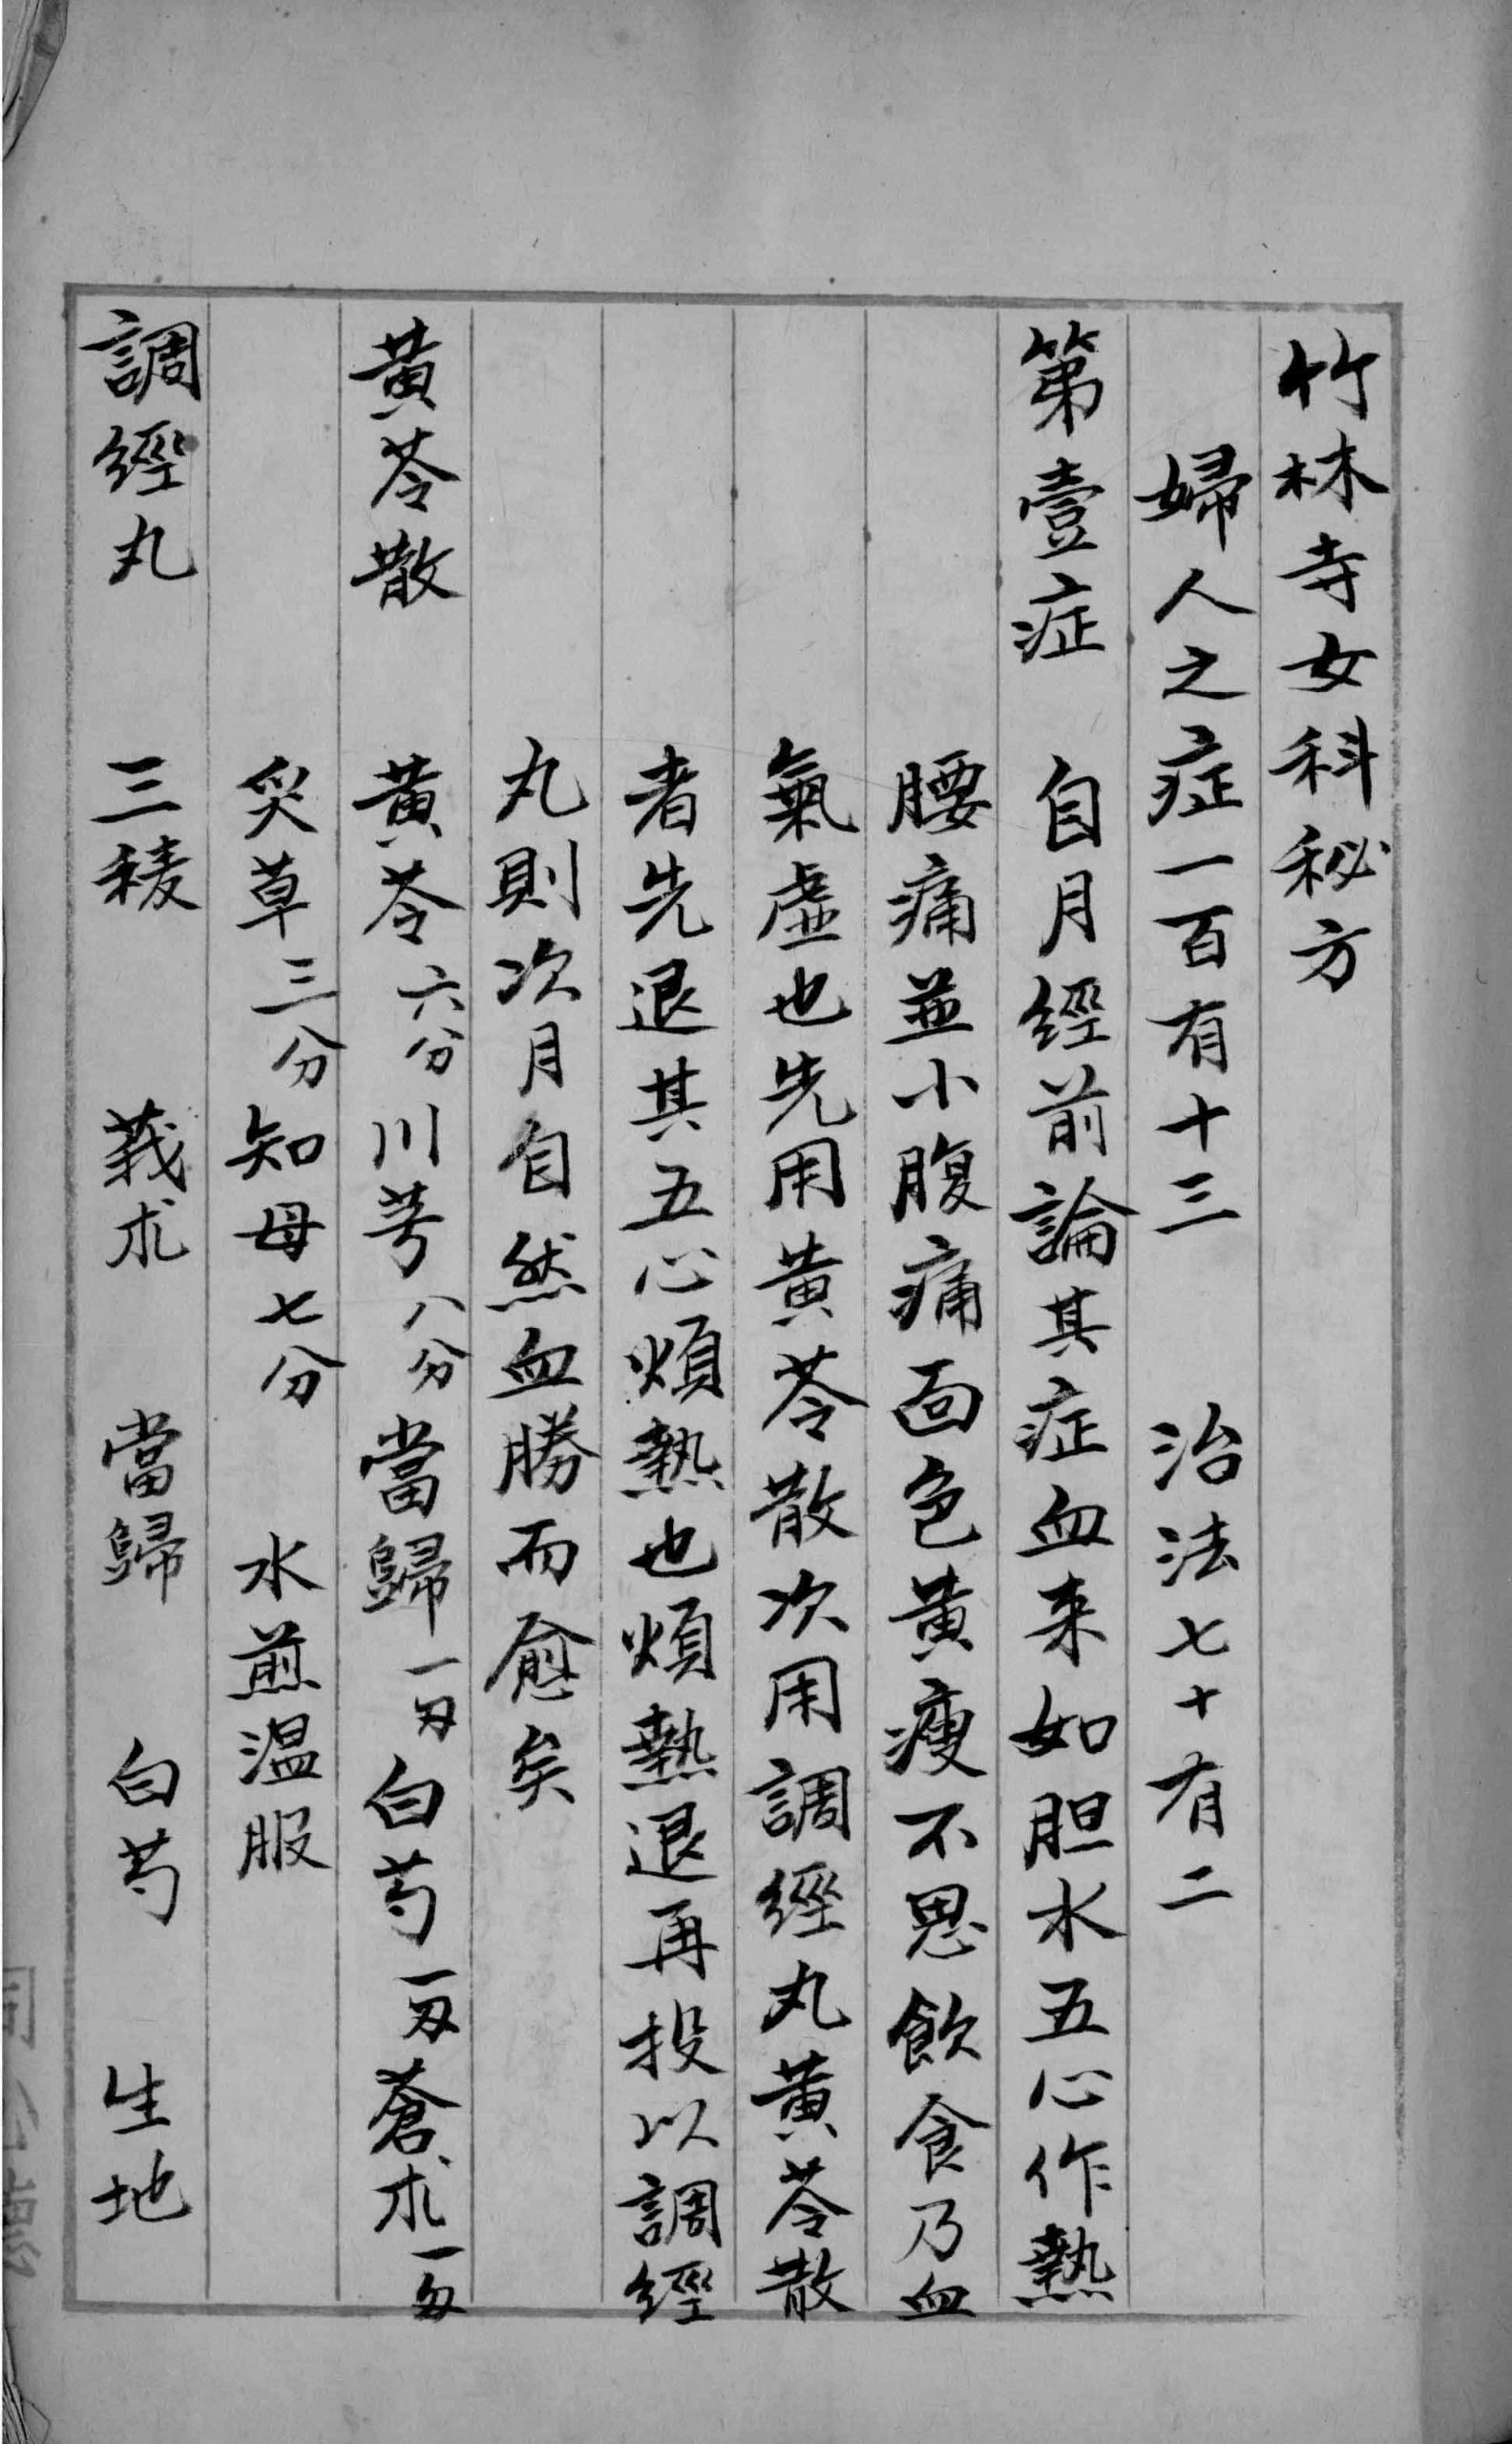 竹林寺女科秘方
婦人之症一百有十三 治法七十有二
第壹症 自月經前論其症血来如胆水五心作熱
腰痛並小腹痛面色黄瘦不思飲食乃血
氣虛也先用黄芩散次用調經丸黄芩散
者先退其五心煩熱也煩熱退再投以調經
丸則次月自然血勝而愈矣
黄芩散 黄芩六分川芎八分當歸一匁白芍一匁蒼朮一匁
炙草三分知母七分 水煎温服
調經丸 三稜 莪朮 當歸 白芍 生地